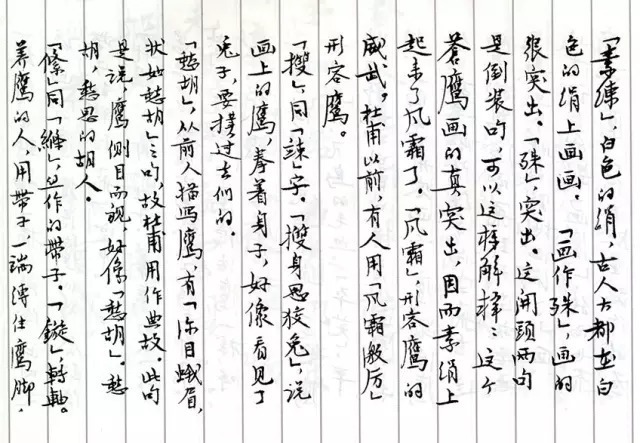 「素练」，白色的绢，古人大都在白
色的绢上画画。「画作殊」，画的
很突出。「殊」，突出。这开头两句
是倒装句，可以这样解释：这个
苍鹰画的真突出，因而素绢上
起来了风霜了。「风霜」，形容鹰的
威武，杜甫以前，有人用「风霜激厉」
形容鹰。
「㩳」，同「竦」字。「㩳身思狡兔」，说
画上的鹰，拳着身子，好像看见了
兔子，要扑过去似的。
「愁胡」，从前人描写鹰，有「深目蛾眉，
状如愁胡」之句，故杜甫用作典故。此句
是说，鹰侧目而视，好像「愁胡」。愁
胡，愁思的胡人。
「絛」同「縧」，丝作的带子。「鏇」，转轴。
养鹰的人，用带子，一端缚住鹰脚，